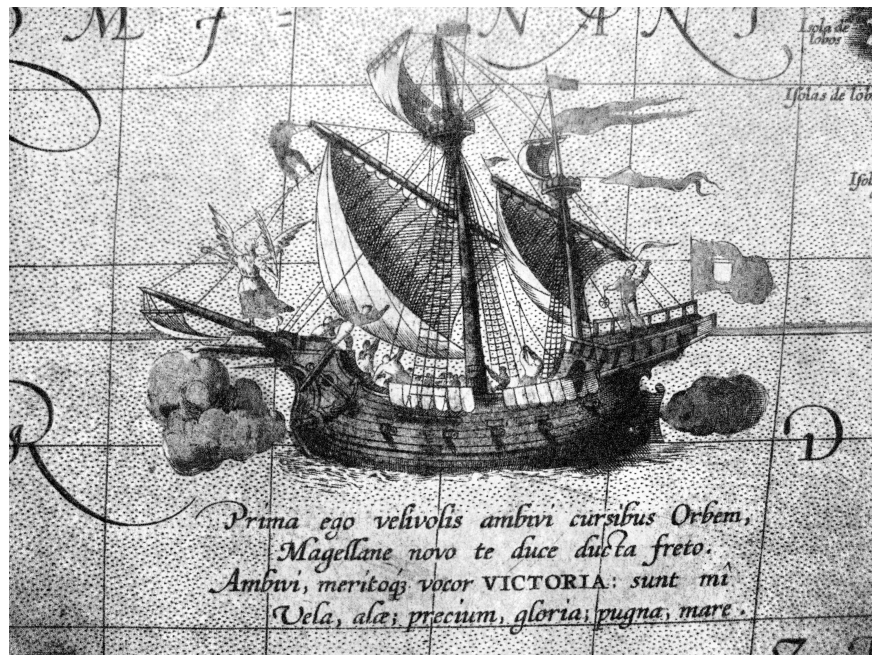 Isola de
lobos
Isolas de lob
Isol
R
D
Prima ego velivolis ambivi cursibus Orbem,
Magellane novo te duce ducta freto.
Ambivi, meritoqꝫ vocor VICTORIA: sunt mî
Vela, alæ; precium, gloria; pugna, mare.